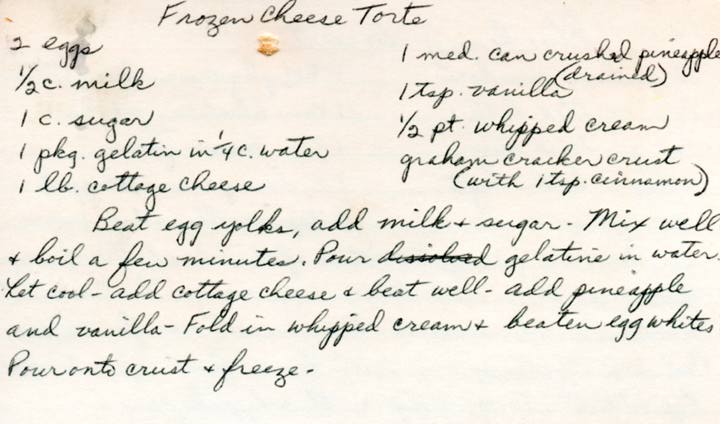 Frozen Cheese Torte
2 eggs
1/2 c. milk
1 c. sugar
1 pkg. gelatin in 1/4 c. water
1 lb. cottage cheese
1 med. can crushed pineapple
(drained)
1 tsp. vanilla
1/2 pt. whipped cream
graham cracker crust
(with 1 tsp. cinnamon)
Beat egg yolks, add milk + sugar - Mix well
+ boil a few minutes. Pour dissolved gelatine in water.
Let cool - add cottage cheese + beat well - add pineapple
and vanilla - Fold in whipped cream + beaten egg whites
Pour onto crust + freeze -